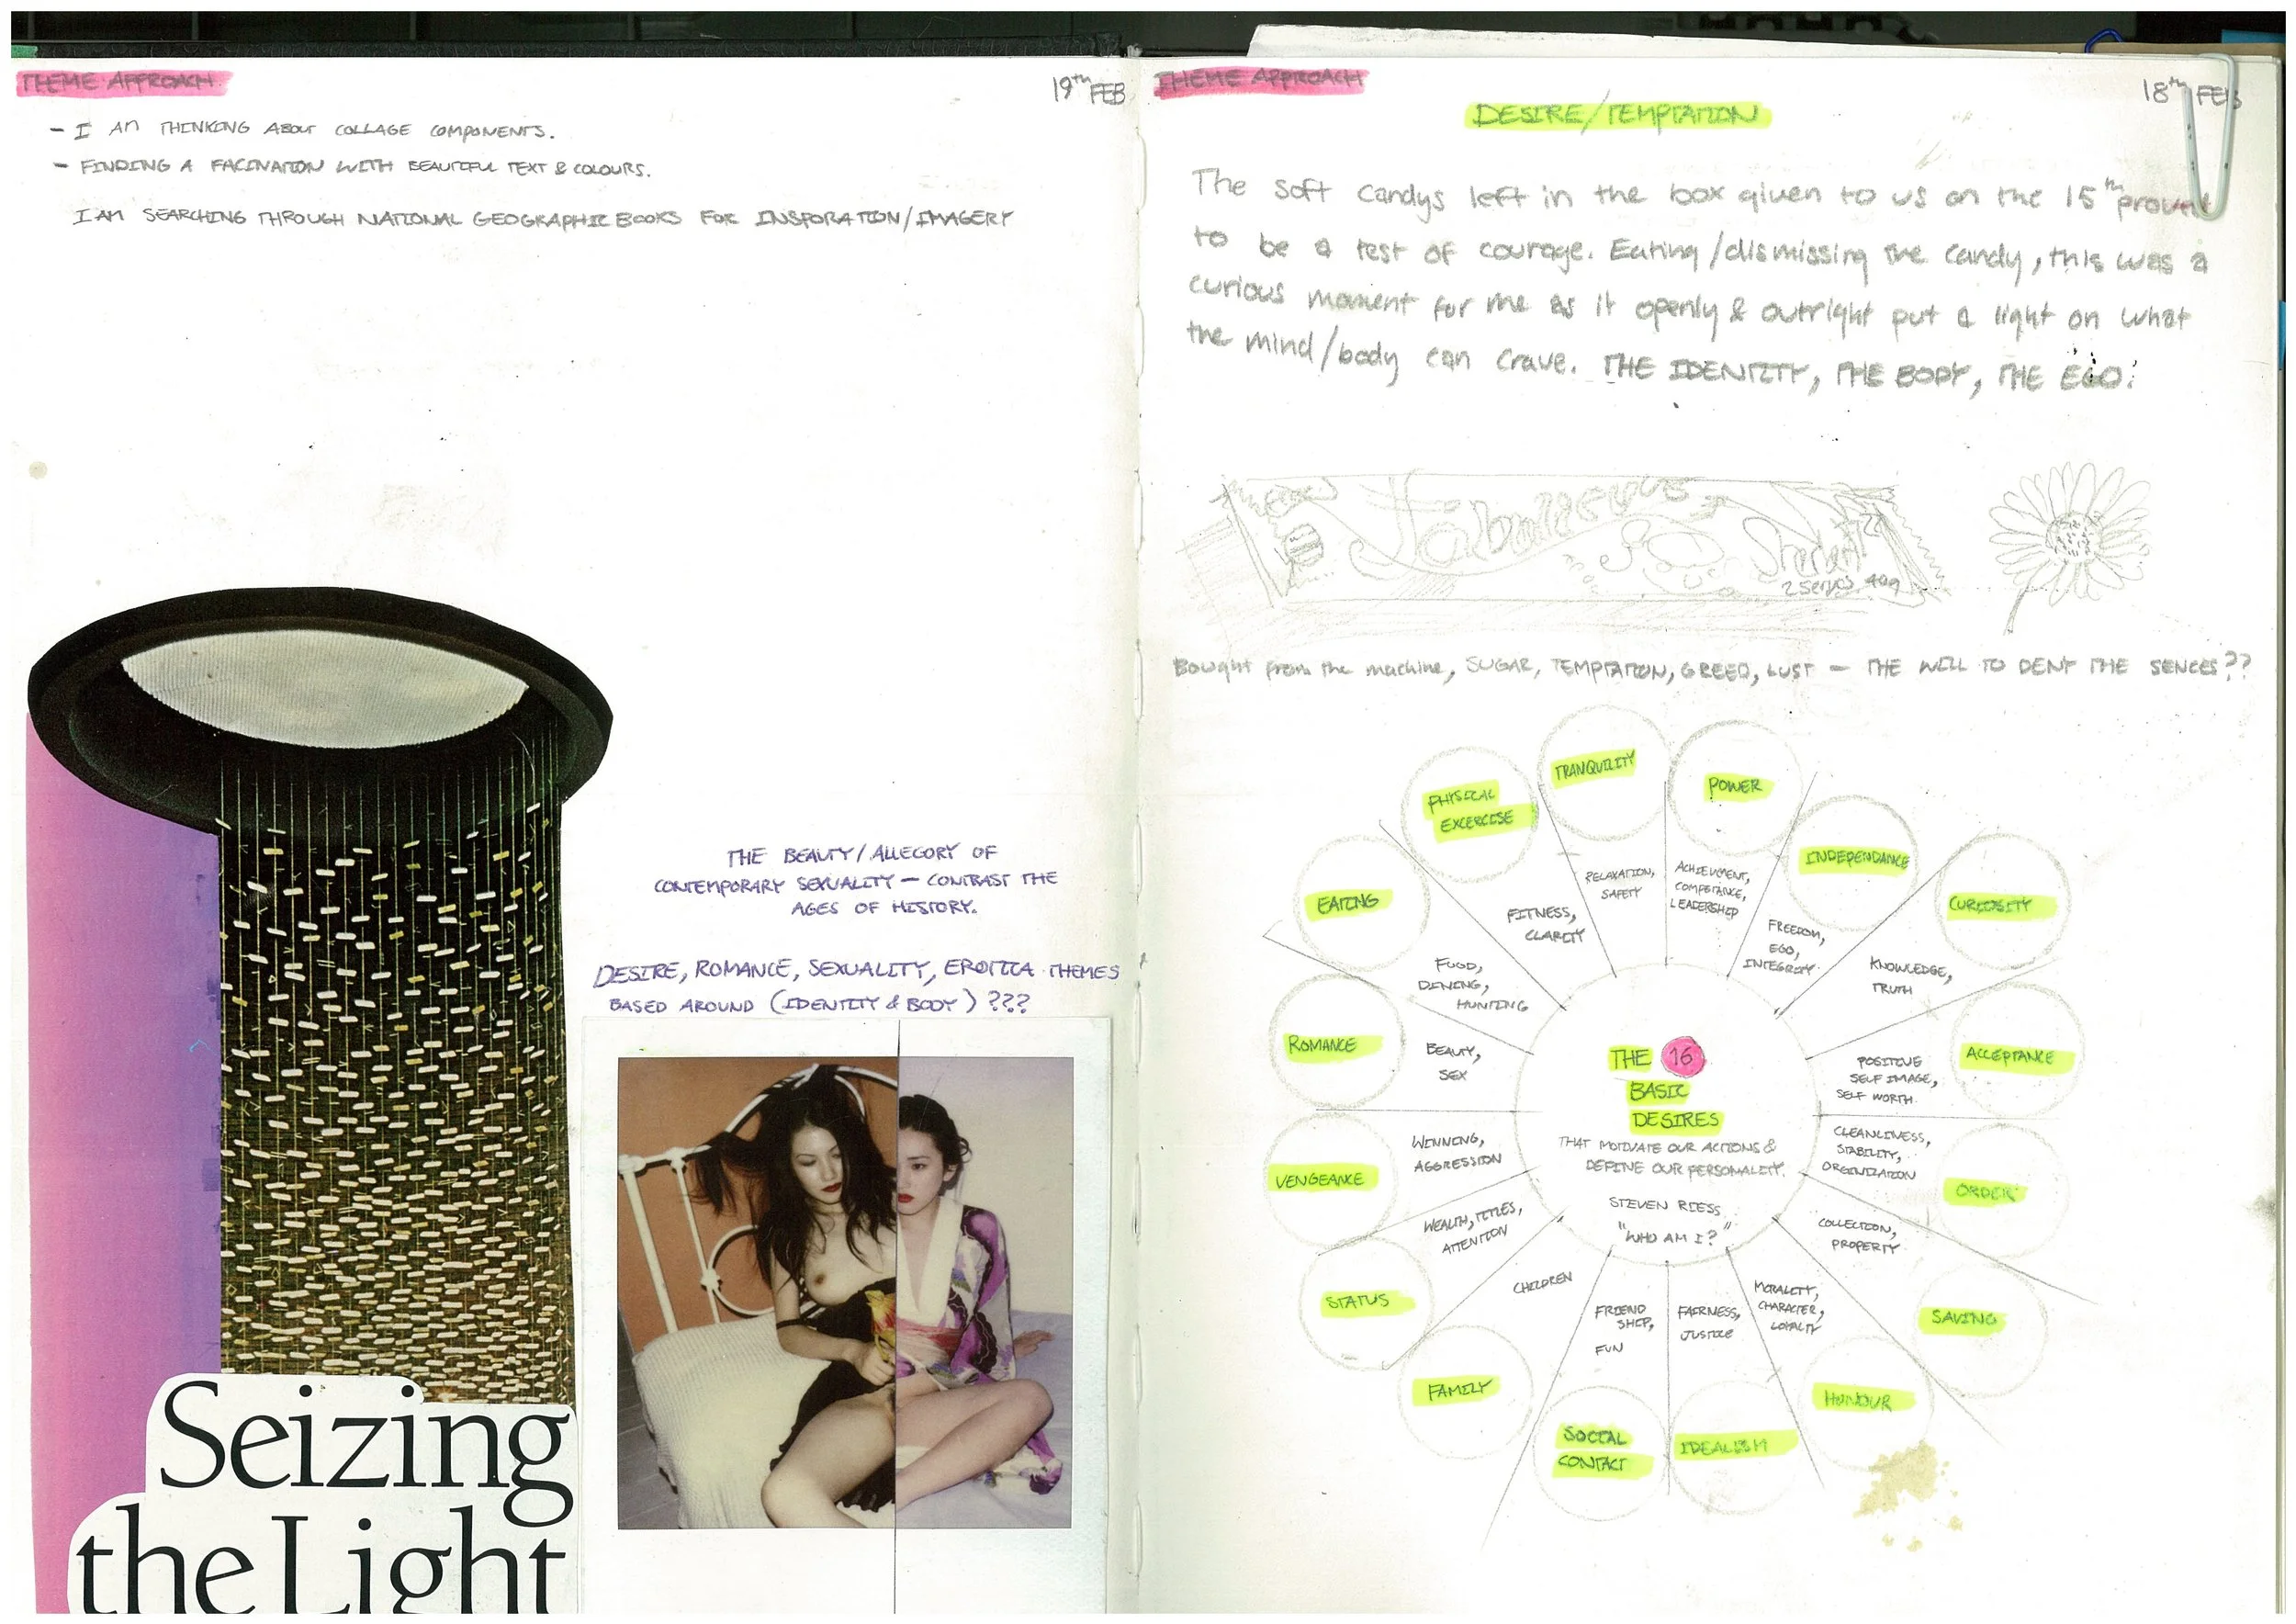 THEME APPROACH
19th FEB
- I AM THINKING ABOUT COLLAGE COMPONENTS.
- FINDING A FACINATION WITH BEAUTIFUL TEXT & COLOURS.
I AM SEARCHING THROUGH NATIONAL GEOGRAPHIC BOOKS FOR INSPORATION/IMAGERY
THE BEAUTY/ALLEGORY OF
CONTEMPORARY SEXUALITY — CONTRAST THE
AGES OF HISTORY.
DESIRE, ROMANCE, SEXUALITY, EROTICA THEMES
BASED AROUND (IDENTITY & BODY) ???
Seizing
the Light
THEME APPROACH
18th FEB
DESIRE/TEMPTATION
The soft candys left in the box given to us on the 15th
to be a test of courage. Eating/dismissing the candy, this was a
curious moment for me as it openly & outright put a light on what
the mind/body can crave. THE IDENTITY, THE BODY, THE EGO.
Fabulicious
Sherbet
2 Serves 40g
Bought from the machine, SUGAR, TEMPTATION, GREED, LUST — THE WILL TO DENY THE SENCES??
THE 16
BASIC
DESIRES
THAT MOTIVATE OUR ACTIONS &
DEFINE OUR PERSONALITY.
STEVEN REISS
"WHO AM I?"
TRANQUILITY
RELAXATION,
SAFETY
POWER
ACHIEVMENT,
COMPETANCE,
LEADERSHIP
INDEPENDANCE
FREEDOM,
EGO,
INTEGRITY
CURIOSITY
KNOWLEDGE,
TRUTH
ACCEPTANCE
POSITIVE
SELF IMAGE,
SELF WORTH.
ORDER
CLEANLINESS,
STABILITY,
ORGENIZATION
SAVING
COLLECTION,
PROPERTY
HONOUR
MORALITY,
CHARACTER,
LOYALTY
IDEALISM
FAIRNESS,
JUSTICE
SOCIAL
CONTACT
FRIEND
SHIP,
FUN
FAMILY
CHILDREN
STATUS
WEALTH, TITLES,
ATTENTION
VENGEANCE
WINNING,
AGGRESSION
ROMANCE
BEAUTY,
SEX
EATING
FOOD,
DINING,
HUNTING
PHYSICAL
EXCERCISE
FITNESS,
CLARITY